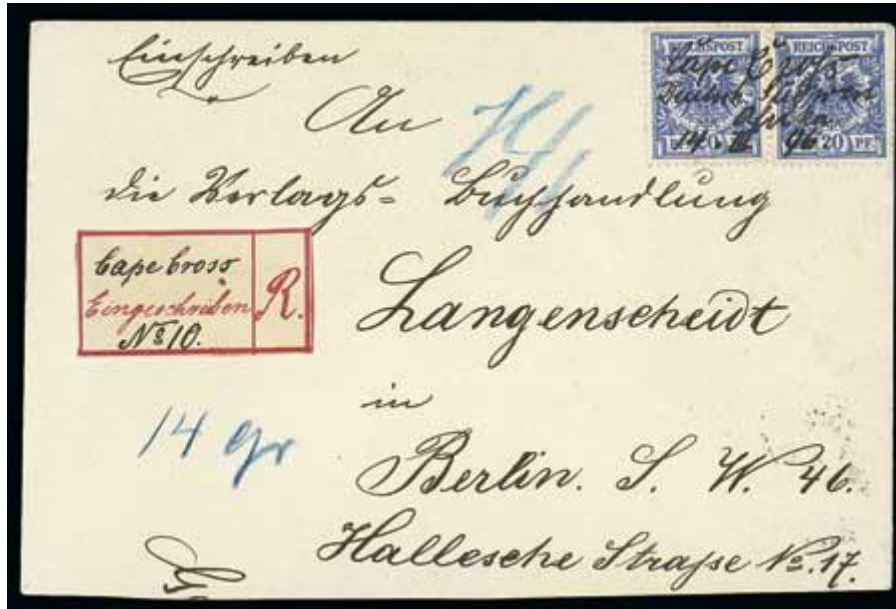 Einschreiben
REICHSPOST REICHSPOST
Cape Croß
Deutsch Südwest
Afrika
14. III 96
20 PF.
An
die Verlags= Buchhandlung
Cape Cross
Eingeschrieben R.
No 10.
Langenscheidt
in
14 gr
Berlin. S. W. 46.
Hallesche Straße No. 17.